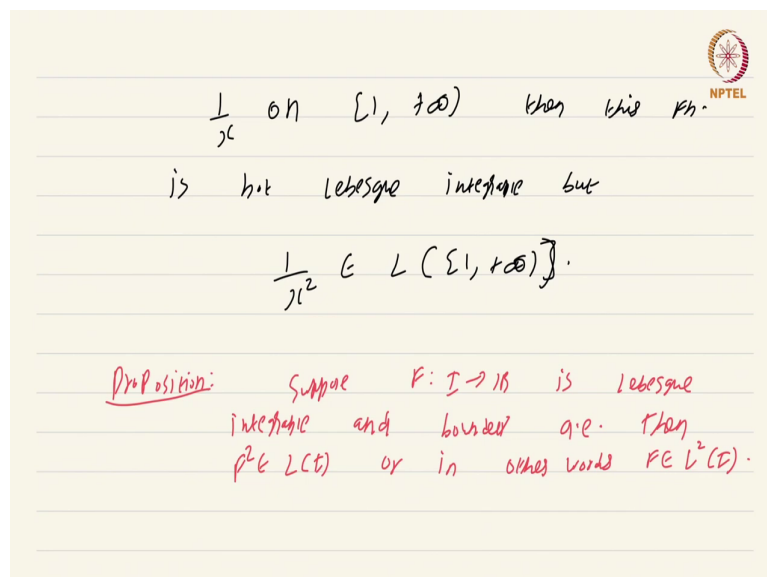 NPTEL
1/x on [1, +∞) then this Fn.
is not Lebesgue integrable but
1/x² ∈ L([1, +∞)].
Proposition: Suppose F: I → IR is Lebesgue
integrable and bounded a.e. then
F² ∈ L(I) or in other words F ∈ L²(I).